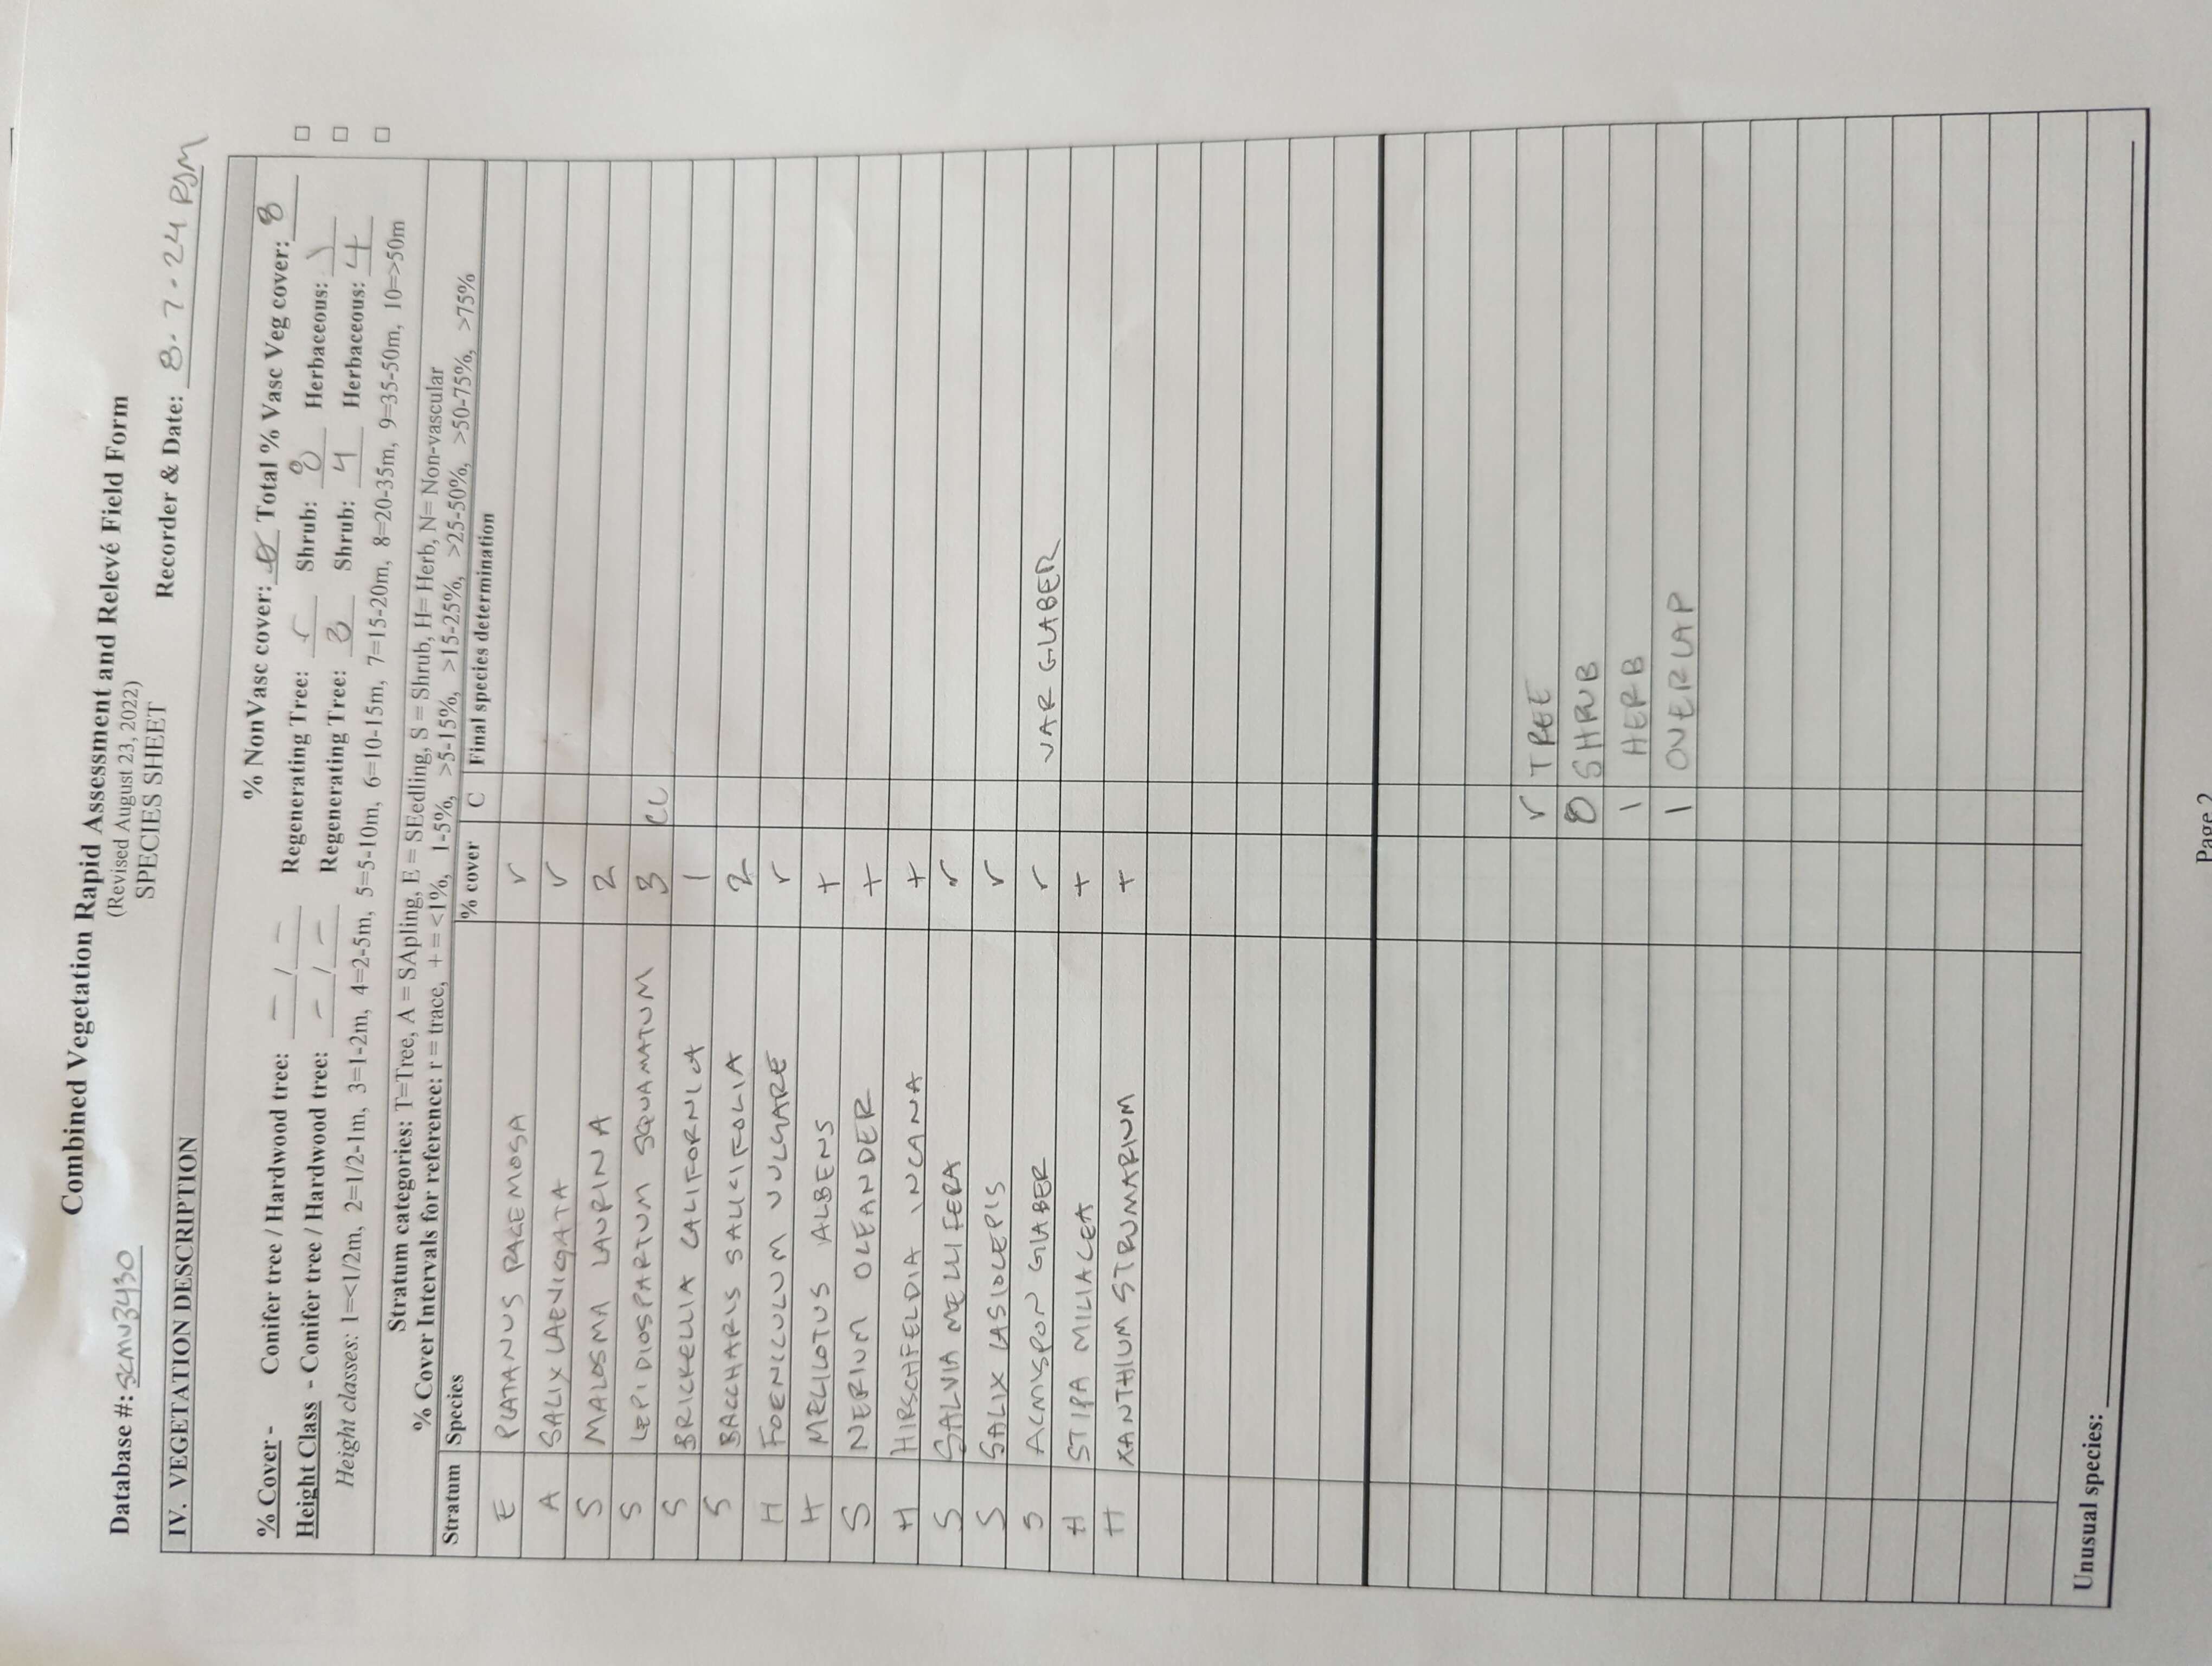 Combined Vegetation Rapid Assessment and Relevé Field Form
(Revised August 23, 2022)
SPECIES SHEET
Database #: SCMV3430 Recorder & Date: 8-7-24 RJM
IV. VEGETATION DESCRIPTION
% NonVasc cover: Ø Total % Vasc Veg cover: 8
% Cover - Conifer tree / Hardwood tree: - / - Regenerating Tree: r Shrub: 8 Herbaceous: 1 □
Height Class - Conifer tree / Hardwood tree: - / - Regenerating Tree: 3 Shrub: 4 Herbaceous: 4 □
Height classes: 1=<1/2m, 2=1/2-1m, 3=1-2m, 4=2-5m, 5=5-10m, 6=10-15m, 7=15-20m, 8=20-35m, 9=35-50m, 10=>50m □
Stratum categories: T=Tree, A = SApling, E = SEedling, S = Shrub, H= Herb, N= Non-vascular
% Cover Intervals for reference: r = trace, + = <1%, 1-5%, >5-15%, >15-25%, >25-50%, >50-75%, >75%
Stratum Species % cover C Final species determination
E PLATANUS RACEMOSA r
A SALIX LAEVIGATA r
S MALOSMA LAURINA 2
S LEPIDIOSPARTUM SQUAMATUM 3 CC
S BRICKELLIA CALIFORNICA 1
S BACCHARIS SALICIFOLIA 2
H FOENICULUM VULGARE r
H MELILOTUS ALBENS +
S NERIUM OLEANDER +
H HIRSCHFELDIA INCANA +
S SALVIA MELLIFERA r
S SALIX LASIOLEPIS r
S ACMISPON GLABER r VAR GLABER
H STIPA MILIACEA +
H XANTHIUM STRUMARIUM +
r TREE
8 SHRUB
1 HERB
1 OVERLAP
Unusual species:
Page 2